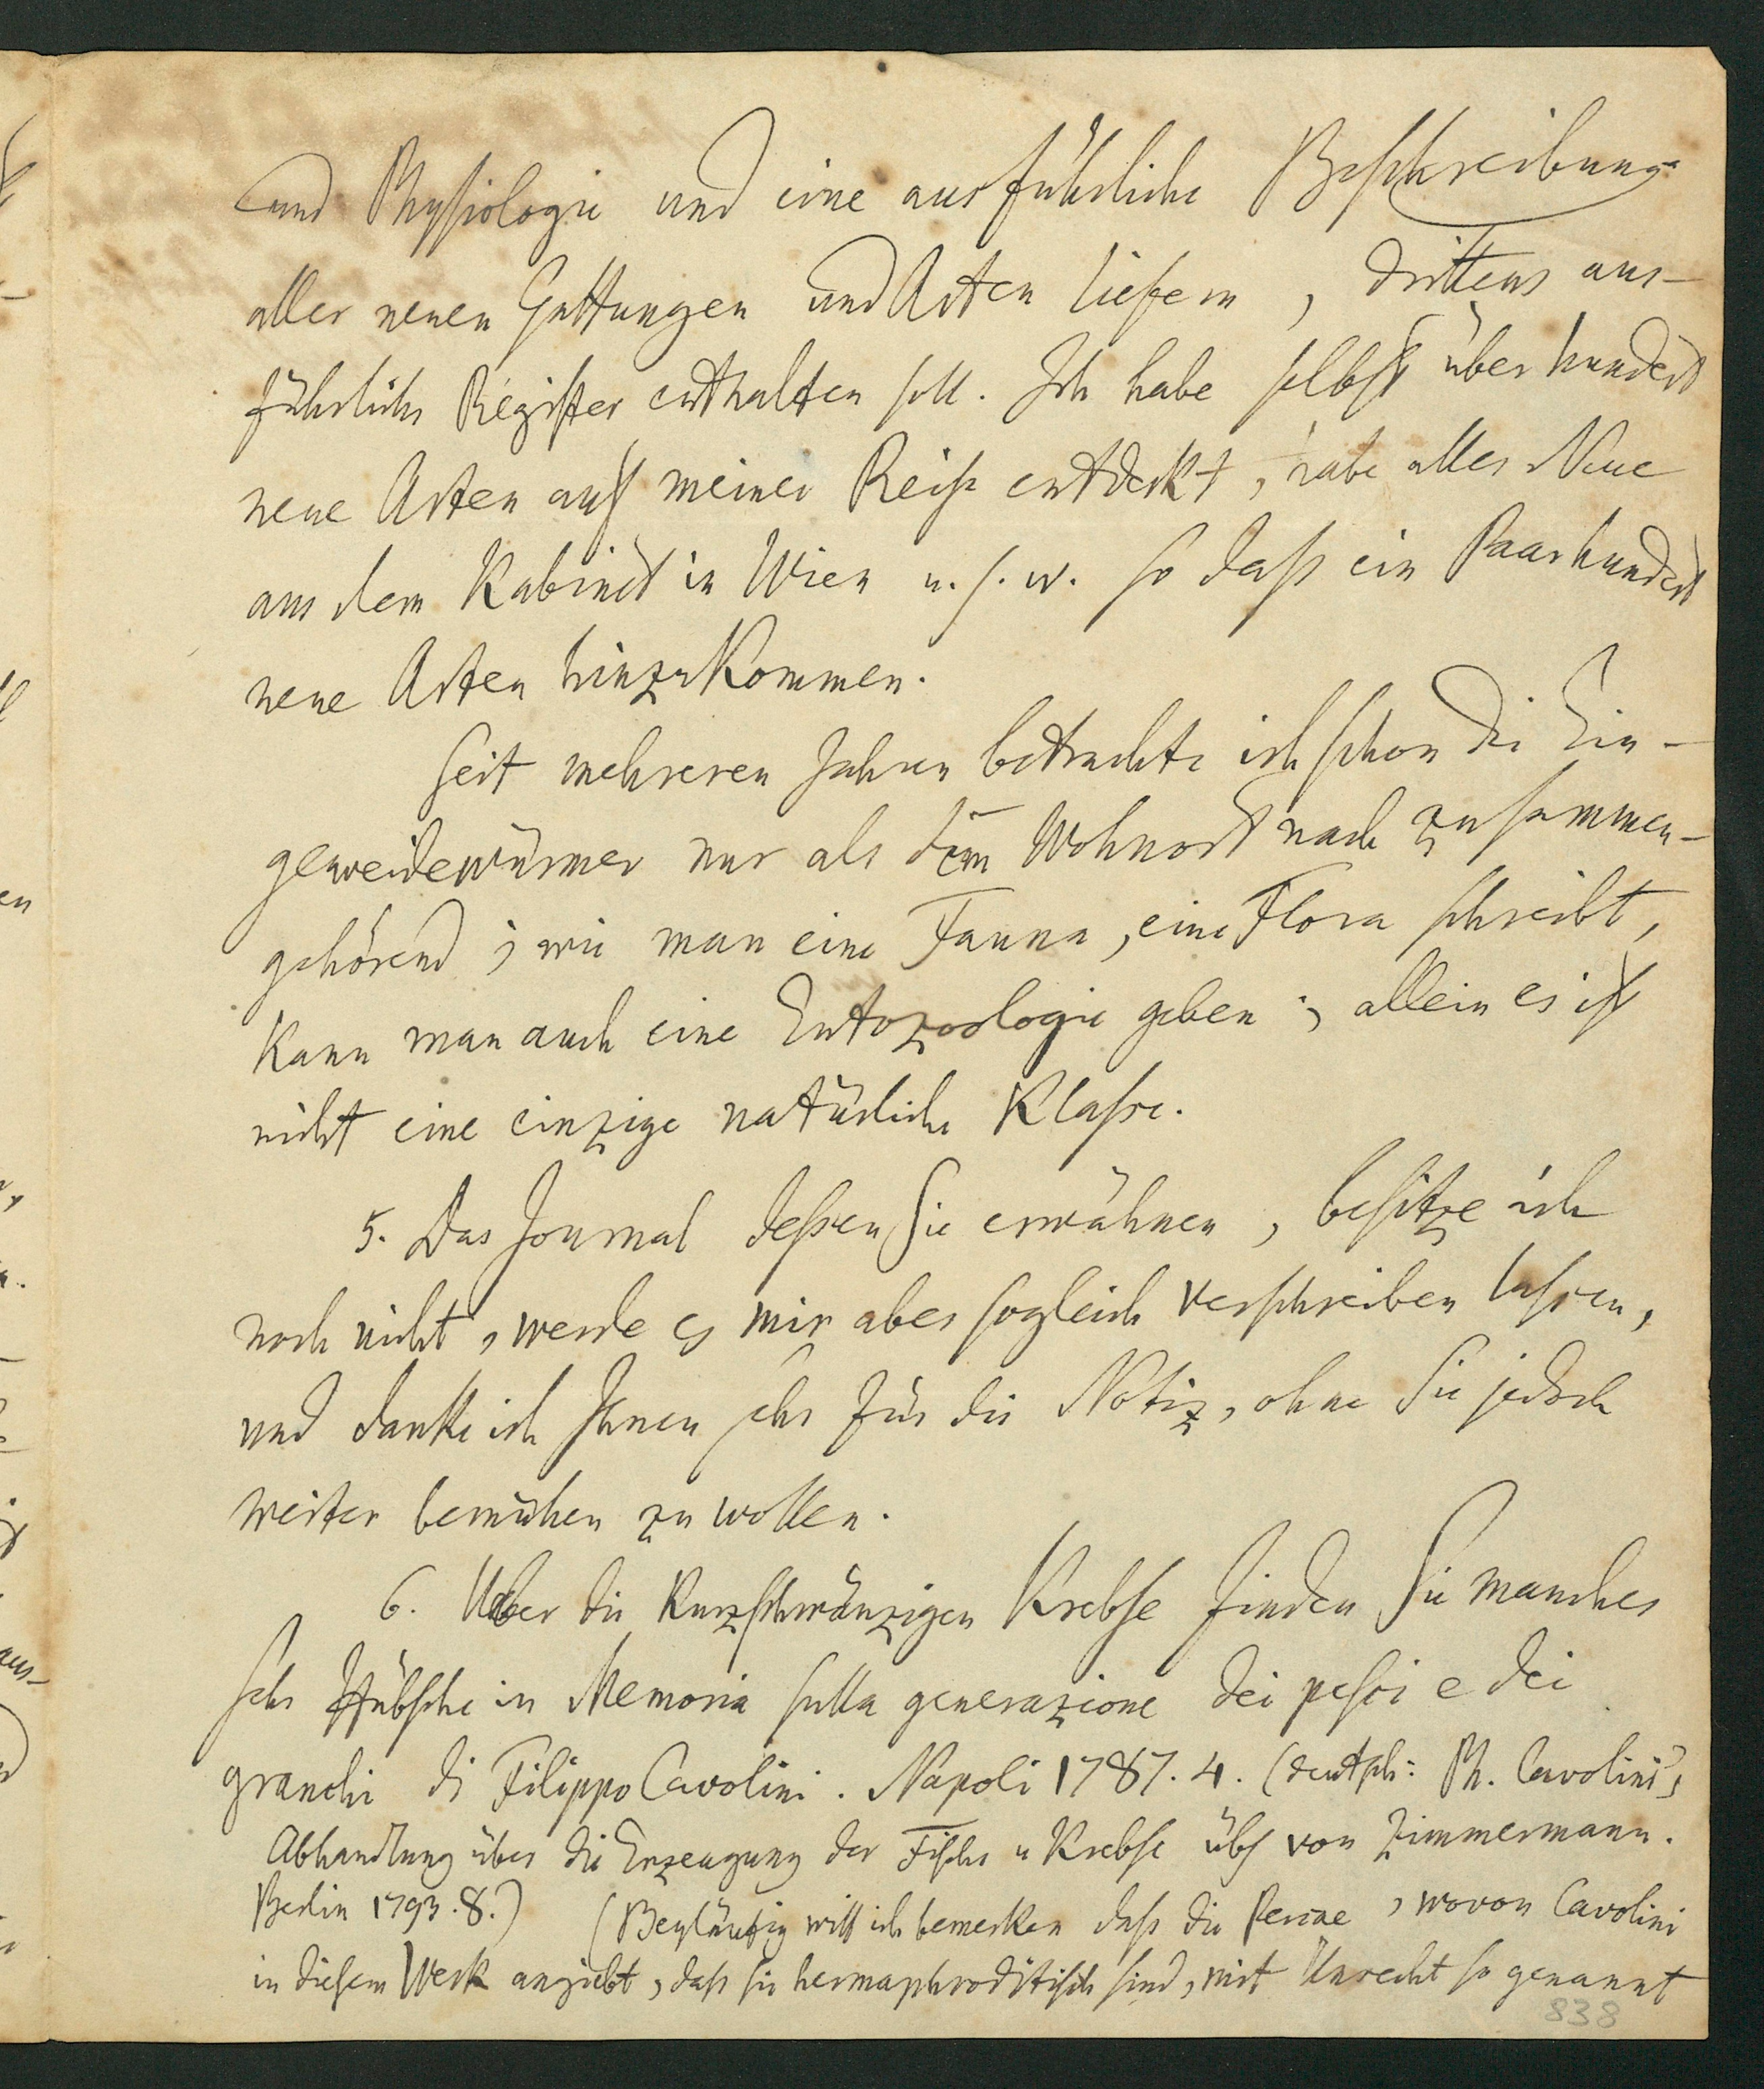 und Physiologie und eine ausführliche Beschreibung
aller neuen Gattungen und Arten liefern, drittens aus-
führliche Register enthalten soll. Ich habe selbst über hundert
neue Arten auf meiner Reise entdeckt, habe alles Neue
aus dem Kabinet in Wien u. s. w. so daß ein Paarhundert
neue Arten hinzukommen.
Seit mehreren Jahren betrachte ich schon die Ein-
geweidewürmer nur als dem Wohnort nach zusammen-
gehörend; wie man eine Fauna, eine Flora schreibt,
kann man auch eine Entozoologie geben; allein es ist
nicht eine einzige natürliche Klasse.
5. Das Journal dessen Sie erwähnen, besitze ich
noch nicht, werde es mir aber sogleich verschreiben lassen,
und danke ich Ihnen sehr für die Notiz, ohne Sie jedoch
weiter bemühen zu wollen.
6. Ueber die Kurzschwänzigen Krebse finden Sie manches
sehr Hübsche in Memoria sulla generazione dei pesci e dei
granchi di Filippo Cavolini. Napoli 1787. 4. (deutsch: Ph. Cavolini's
Abhandlung über die Erzeugung der Fische u Krebse übs von Zimmermann.
Berlin 1793. 8.) (Beyläufig will ich bemerken daß die Percae, wovon Cavolini
in diesem Werk angiebt, daß sie hermaphroditisch sind, mit Unrecht so genannt
838